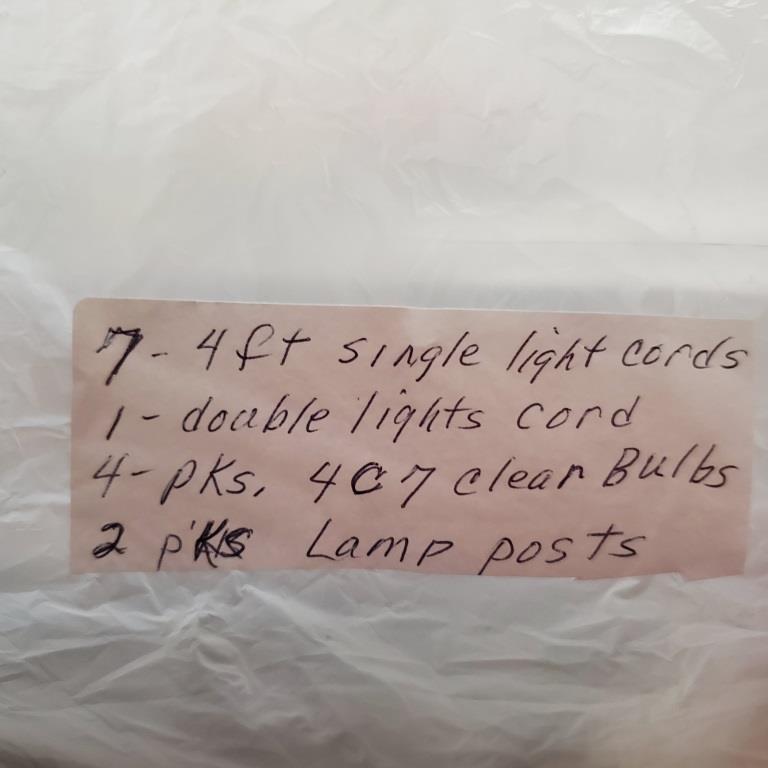 7- 4ft single light cords
1- double lights cord
4- pks. 4C7 clear Bulbs
2 pks Lamp posts